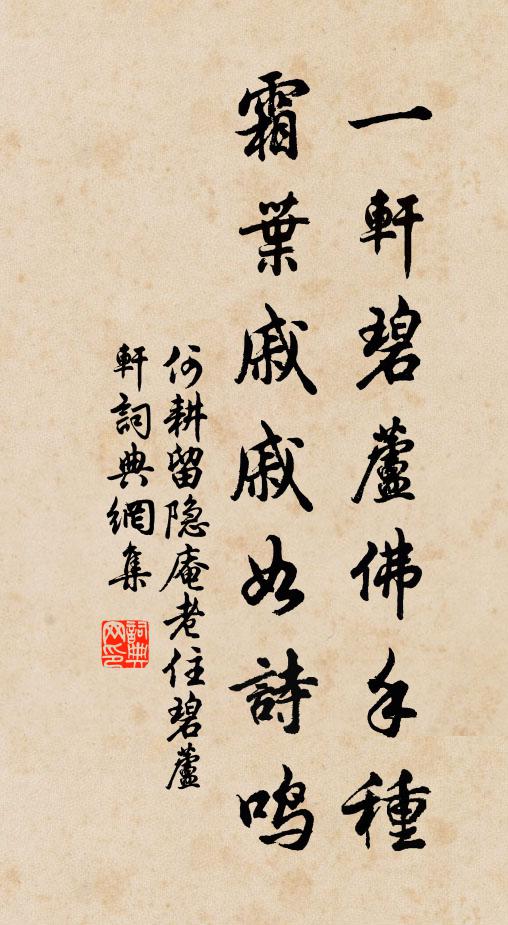 一軒碧蘆佛手種
霜葉戚戚如詩鳴
何耕留隐庵老住碧蘆
軒詞典網集
詞典
网印